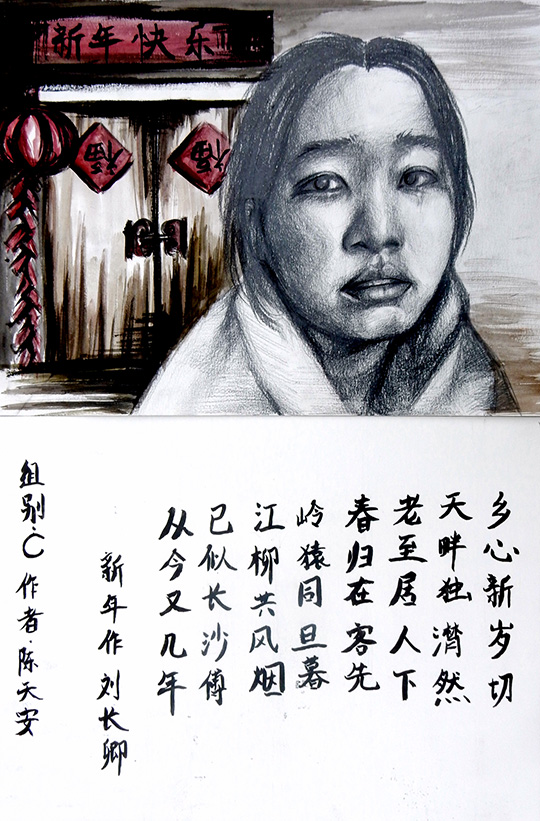 新年快乐
福
福
乡心新岁切
天畔独潸然
老至居人下
春归在客先
岭猿同旦暮
江柳共风烟
已似长沙傅
从今又几年
新年作 刘长卿
组别·C 作者·陈天安